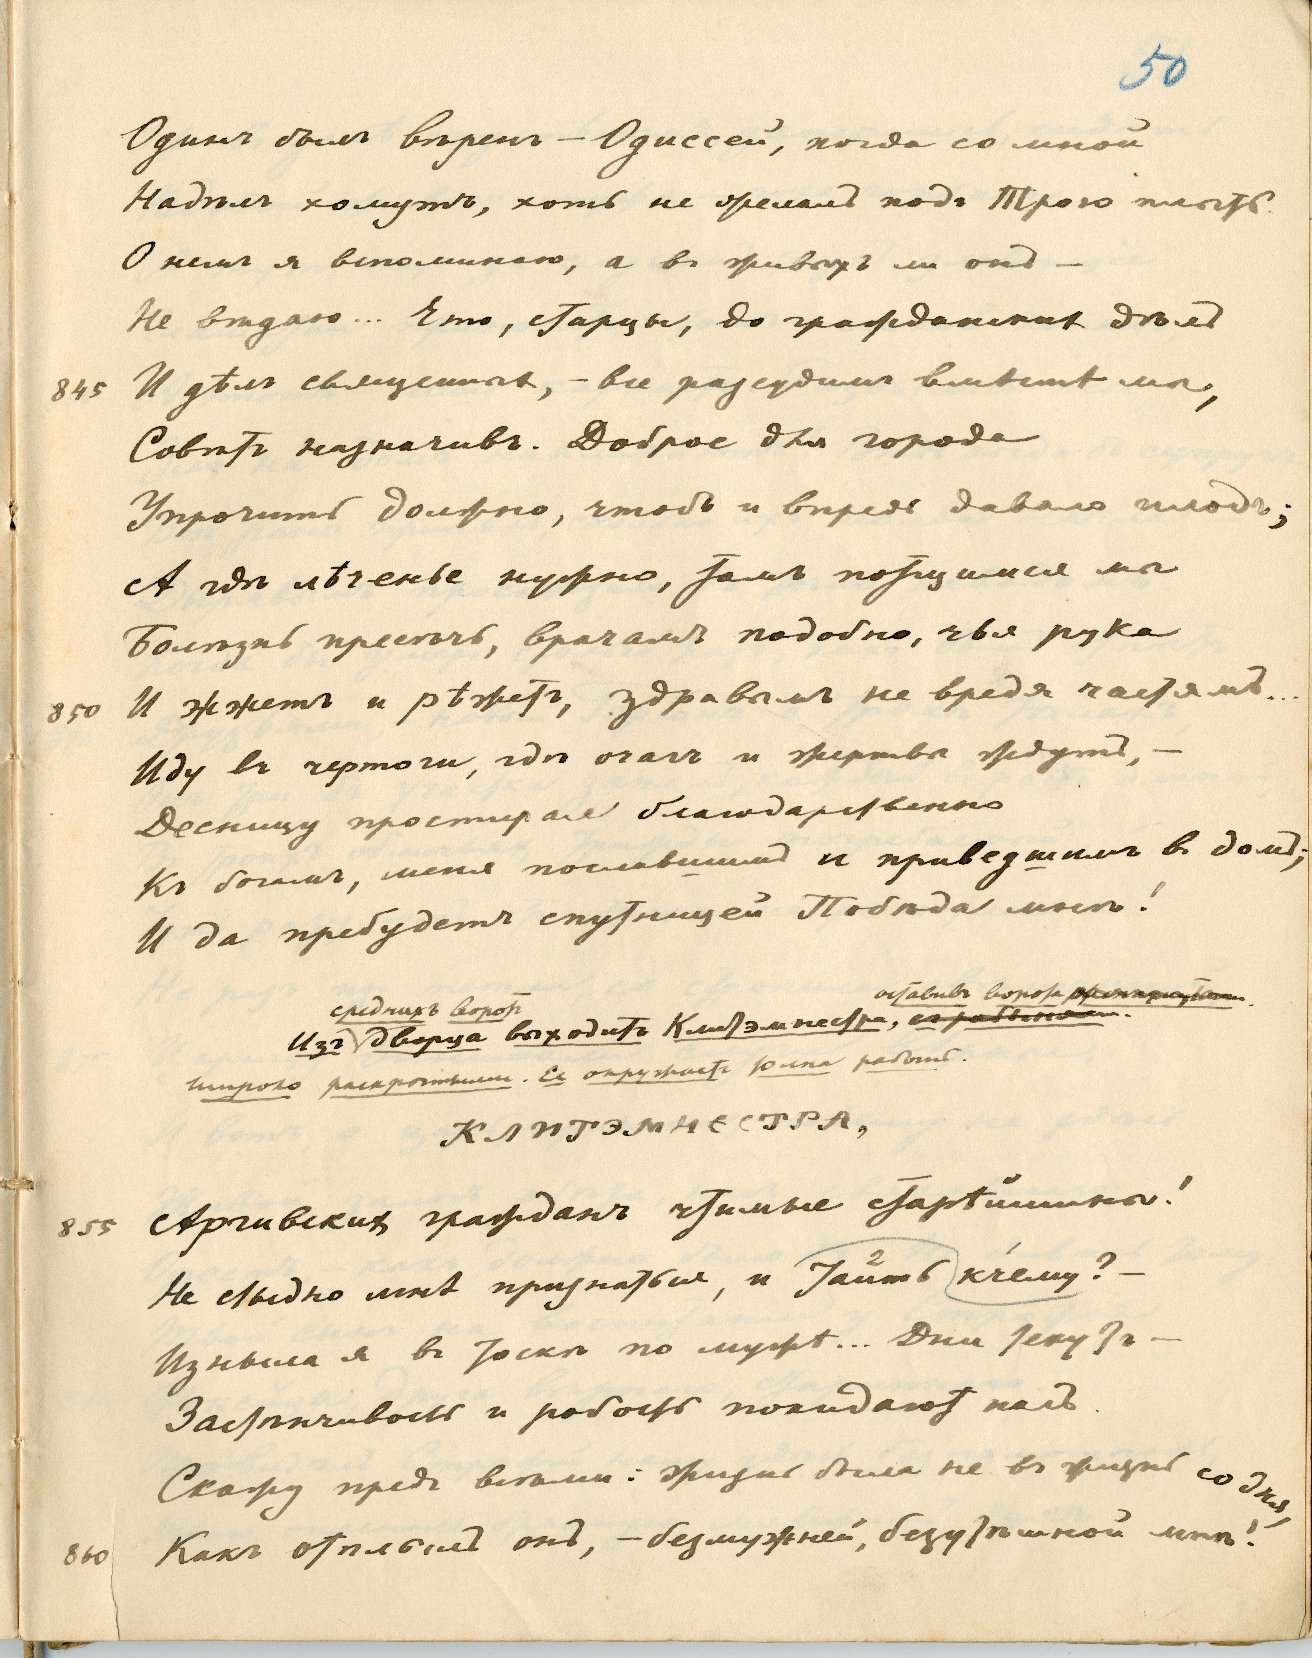 50
Одинъ былъ вѣренъ – Одиссей, когда со мной
Надѣлъ хомутъ, хоть не желалъ подъ Трою плыть.
О немъ я вспоминаю, а въ живыхъ ли онъ –
Не вѣдаю... Что, старцы, до гражданскихъ дѣлъ
845 И дѣлъ священныхъ, – все разсудимъ вмѣстѣ мы,
Совѣтъ назначивъ. Доброе для города
Упрочить должно, чтобъ и впредь давало плодъ;
А гдѣ лѣченье нужно, тамъ потщимся мы
Болѣзнь пресѣчь, врачамъ подобно, чья рука
850 И жжетъ и рѣжетъ, здравымъ не вредя частямъ...
Иду въ чертоги, гдѣ очагъ и жертвы ждутъ, –
Десницу простирая благодарственно
Къ богамъ, меня пославшимъ и приведшимъ въ домъ;
И да пребудетъ спутницей Побѣда мнѣ!
среднихъ воротъ оставивъ ворота
Изъ дворца выходитъ Клитэмнестра, съ рабынями.
широко раскрытыми. Ее окружаетъ толпа рабынь.
КЛИТЭМНЕСТРА,
855 Аргивскихъ гражданъ чтимые старѣйшины!
Не стыдно мнѣ признаться, и таить к чему? –
Изныла я въ тоскѣ по мужѣ... Дни текутъ –
Застѣнчивость и робость покидаютъ насъ.
Скажу предъ всѣми: жизнь была не въ жизнь со дня,
860 Какъ отплылъ онъ, – безмужней, безутѣшной мнѣ!